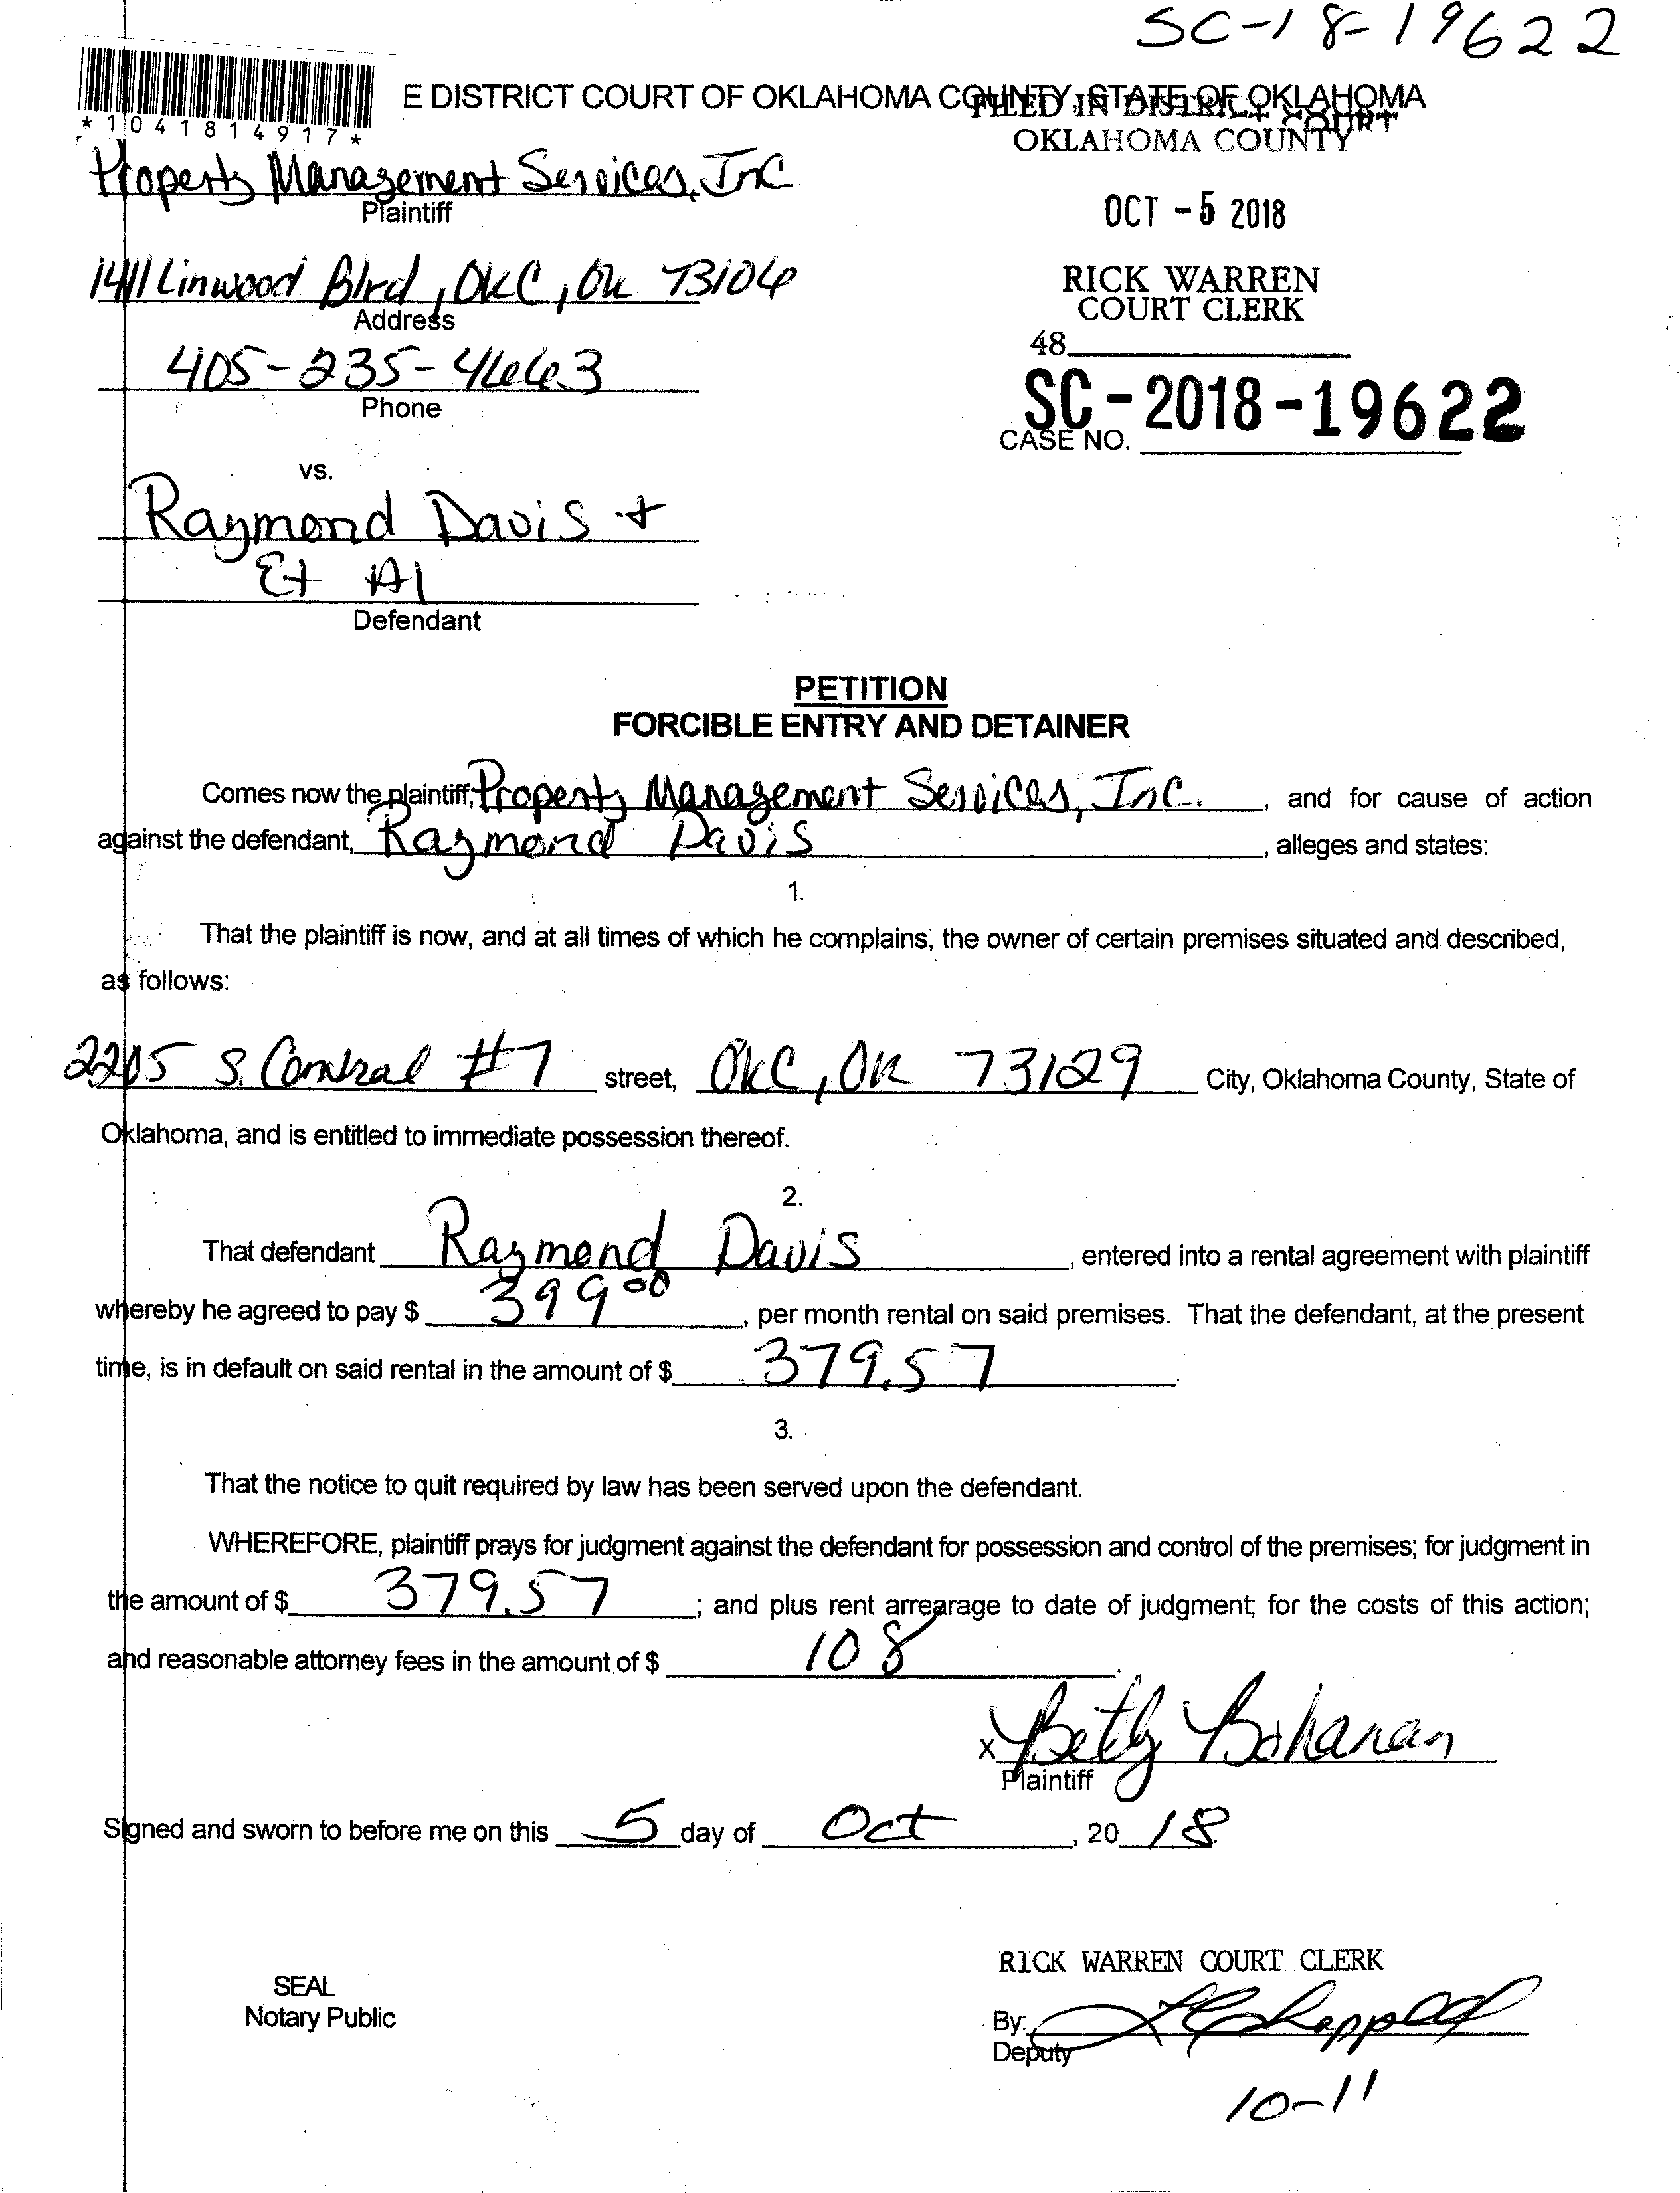 SC-18-19622
*1041814917*
E DISTRICT COURT OF OKLAHOMA COUNTY, STATE OF OKLAHOMA
FILED IN DISTRICT COURT
OKLAHOMA COUNTY
Property Management Services, Inc
Plaintiff
OCT -5 2018
1411 Linwood Blvd, OKC, OK 73106
Address
RICK WARREN
COURT CLERK
405-235-4663
Phone
48
SC-2018-19622
CASE NO.
vs.
Raymond Davis +
Et Al
Defendant
PETITION
FORCIBLE ENTRY AND DETAINER
Comes now the plaintiff, Property Management Services, Inc., and for cause of action
against the defendant, Raymond Davis, alleges and states:
1.
That the plaintiff is now, and at all times of which he complains, the owner of certain premises situated and described,
as follows:
2205 S. Central #7 street, OKC, OK 73129 City, Oklahoma County, State of
Oklahoma, and is entitled to immediate possession thereof.
2.
That defendant Raymond Davis, entered into a rental agreement with plaintiff
whereby he agreed to pay $ 399 00, per month rental on said premises. That the defendant, at the present
time, is in default on said rental in the amount of $ 379.57.
3.
That the notice to quit required by law has been served upon the defendant.
WHEREFORE, plaintiff prays for judgment against the defendant for possession and control of the premises; for judgment in
the amount of $ 379.57; and plus rent arrearage to date of judgment; for the costs of this action;
and reasonable attorney fees in the amount of $ 108.
X Betty Bohanan
Plaintiff
Signed and sworn to before me on this 5 day of Oct, 20 18.
RICK WARREN COURT CLERK
SEAL
Notary Public
By:
Deputy
10-11